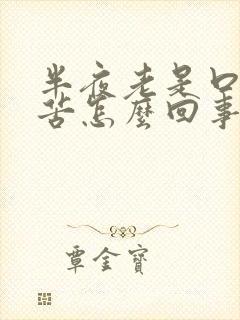 半夜老是口
苦怎麼回事
覃金寶